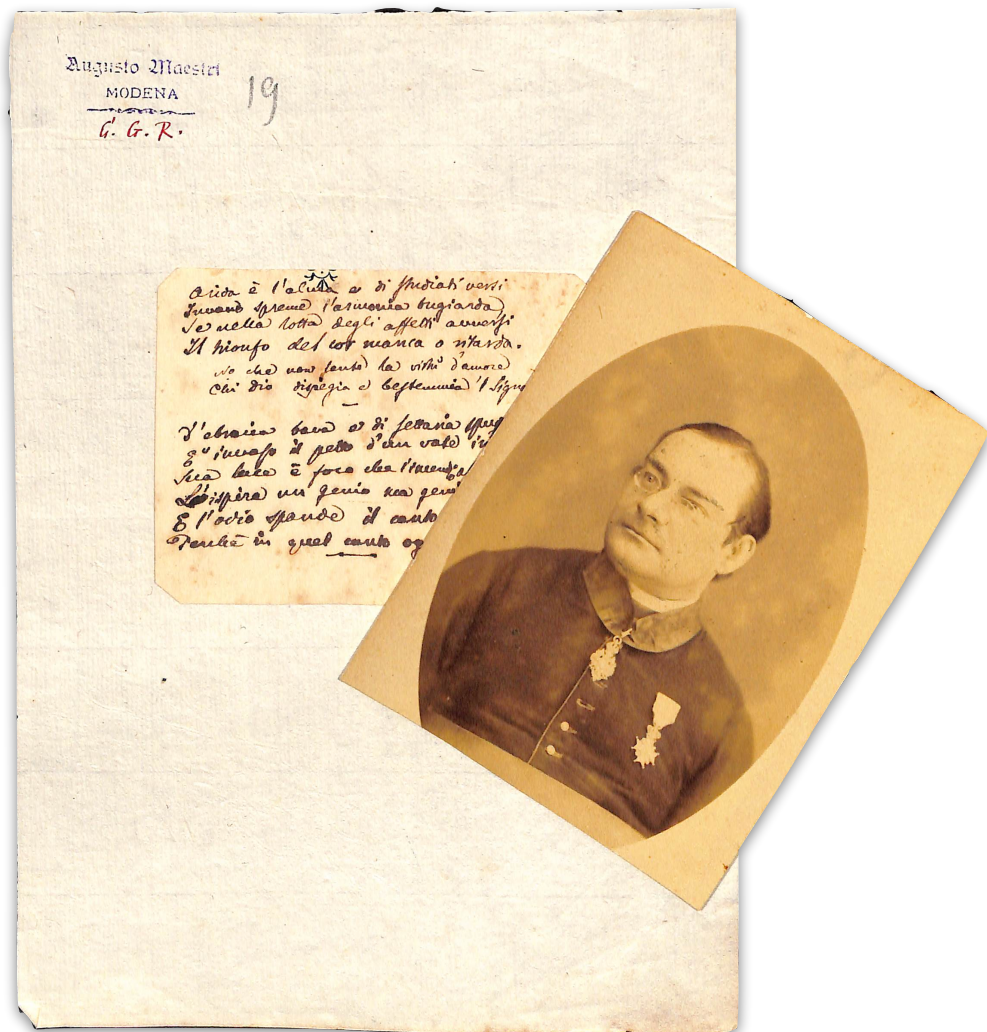 Augusto Maestri
MODENA
G. G. R.
19
Arida è l'alma e di studiati versi
Invano spreme l'armonia bugiarda,
Se nella lotta degli affetti avversi
Il trionfo del cor manca o ritarda.
No che non sente la virtù d'amore
Chi Dio dispregia e bestemmia 'l
D'ebraica bava e di settaria
invaso il petto d'un vate
Sua luce è foco che l'incendia
L'ispira un genio ma
E l'odio spande il canto
Perchè in quel canto